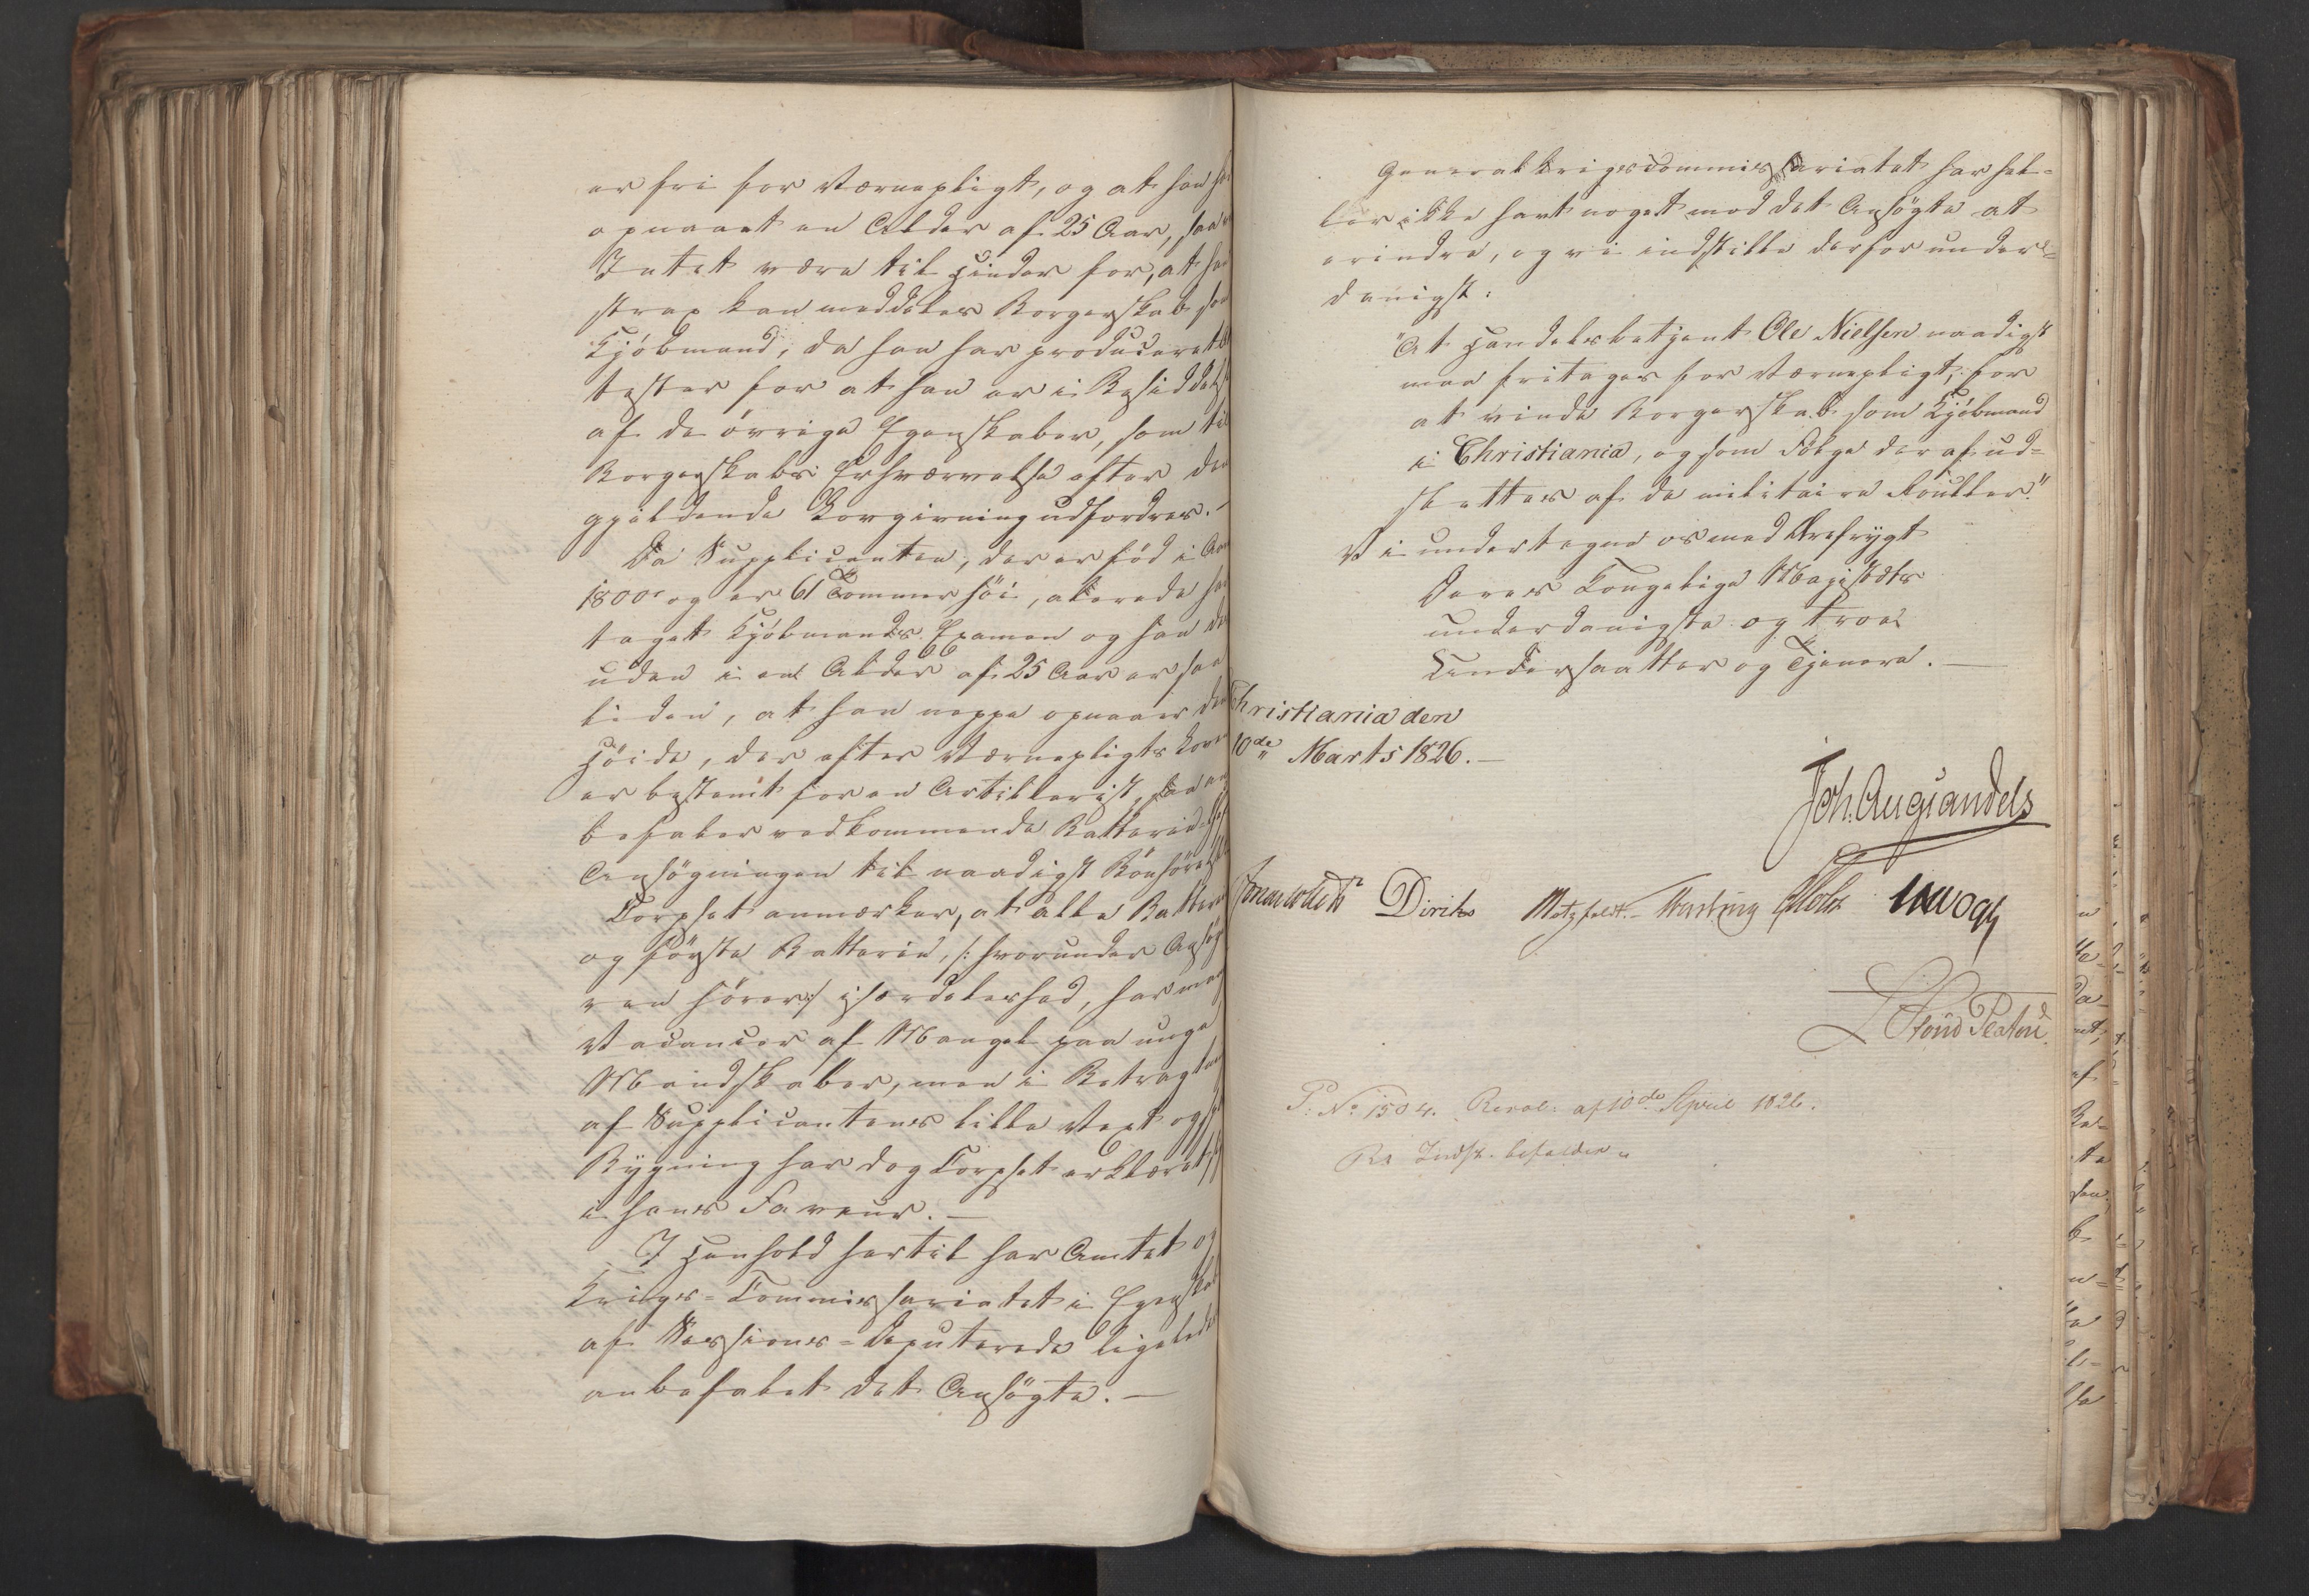 er fri for Værnepligt, og at han har
opnaaet en Alder af 25 Aar, saa
Intet være til Hinder for, at han
strax kan meddeles Borgerskab som
Kjöbmand, da han har produceret At-
tester for at han er i Besiddelse
af de övrige Egenskaber, som til
Borgerskabs Erhværvelse efter den
gjældende Lovgivning udfordres. –
Da Supplicanten, der er föd i Aar
1800 og er 61 Tommer höi, allerede har
taget Kjöbmands Examen og han des
uden i en Alder af 25 Aar er saa
liden, at han neppe opnaaer den
Höide, der efter Værnepligts Loven
er bestemt for en Artillerist, saa an
befaler vedkommende Batterie-Chef
Ansögningen til naadigst Bönhörelse
Corpset anmærker, at alle Batterier
og förste Batterie, /: hvorunder Ansög
eren hörer :/ isærdeleshed, har mange
Vacancer af Mangel paa unge
Mandskaber, men i Betragtning
af Supplicantens lille Vext og
Bygning har dog Corpset erklæret sig
i hans Faveur. –
I Henhold hertil har Amtet og
Krigs-Commissariatet i Egenskab
af Sessions-Deputerede ligeledes
anbefalet det Ansögte. –
Generalkrigscommissariatet har hel-
ler ikke havt noget mod det Ansögte at
erindre, og vi indstille derfor under-
danigst:
"At Handelsbetjent Ole Nielsen naadigst
maa fritages for Værnepligt, for
at vinde Borgerskab som Kjöbmand
i Christiania, og som Fölge deraf ud-
slettes af de militaire Roller."
Vi undertegne os med Ærefrygt
Deres Kongelige Majestæts
underdanigste og troe
Undersaatter og Tjenere. –
Christiania den
10de Marts 1826. –
Joh. Aug Sandels
Diriks Motzfeldt. Holst JHVogt
v Foud Platou
P: No 1504. Resol: af 10de April 1826.
Rs Indst. bifaldes